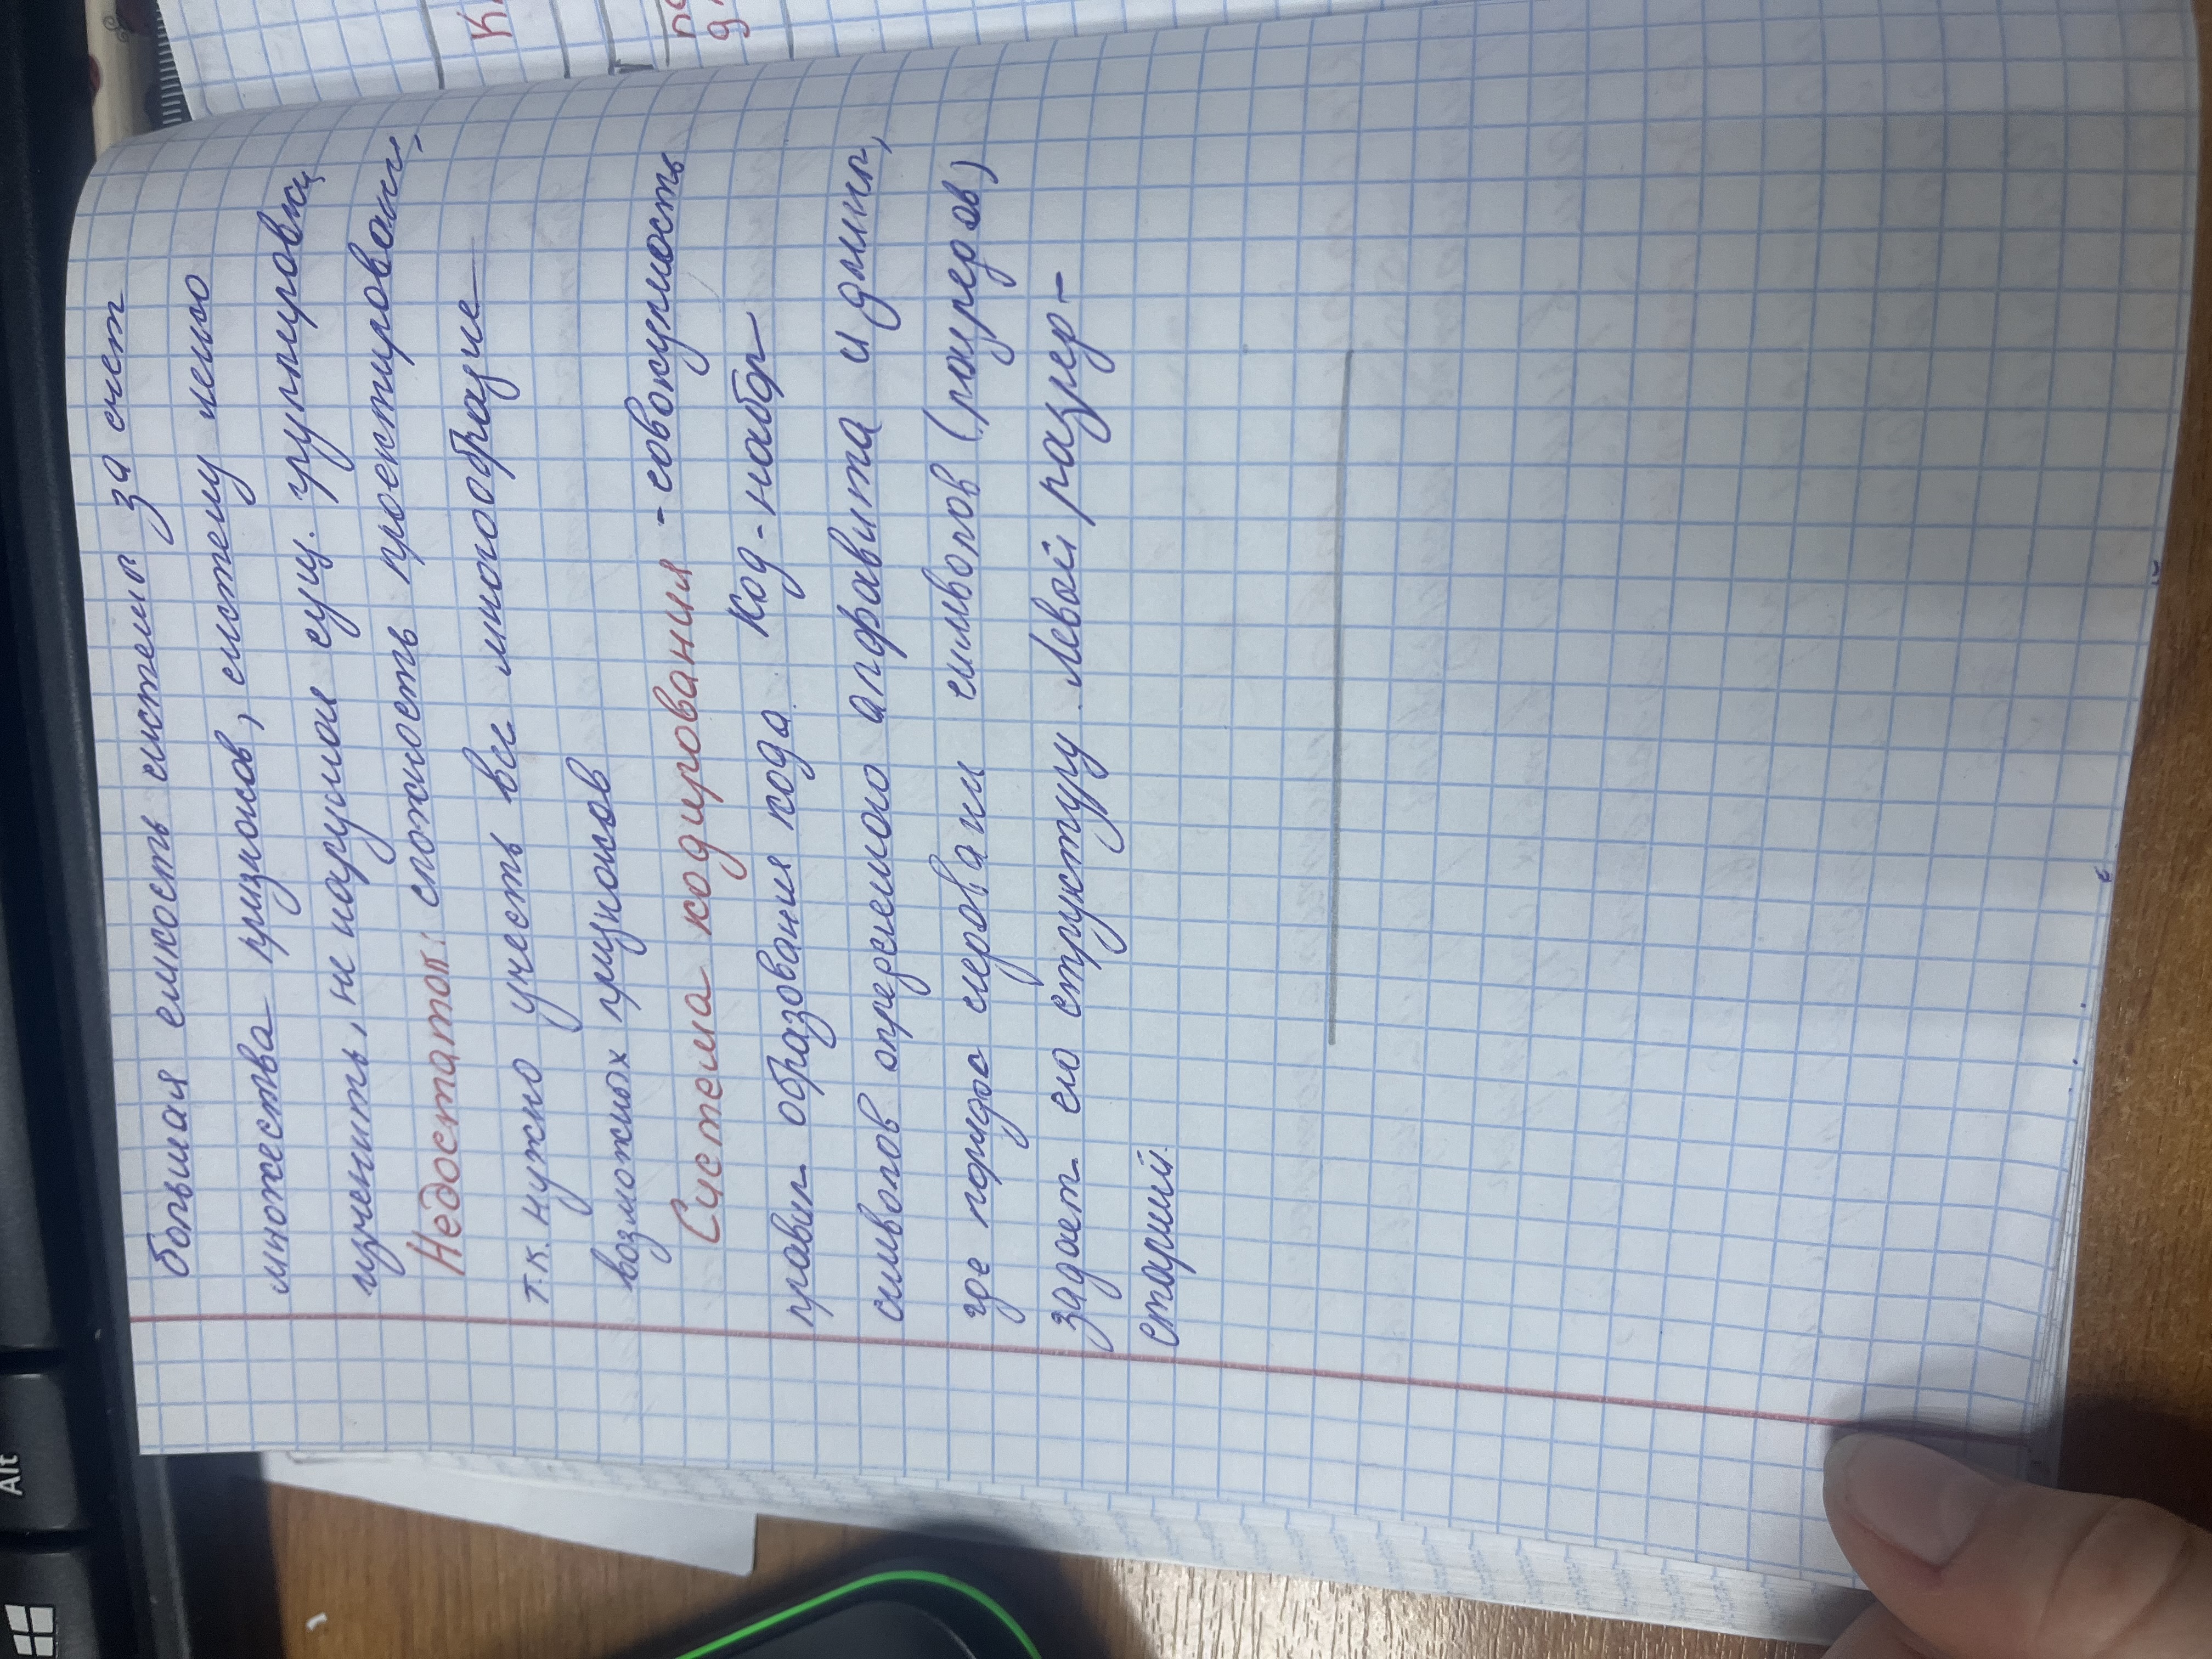 большая емкость системы за счет
множества признаков, систему легко
изменить, не наруш сущ. группировки
Недостаток: сложность проектирован.,
т.к. нужно учесть все многообразие
возможных признаков
Система кодирования - совокупность
правил образования кода Код - набор
символов определного алфавита и длины,
где порядо следован символов (разрядов)
задает его структуру. Левой разряд-
старший.
Alt